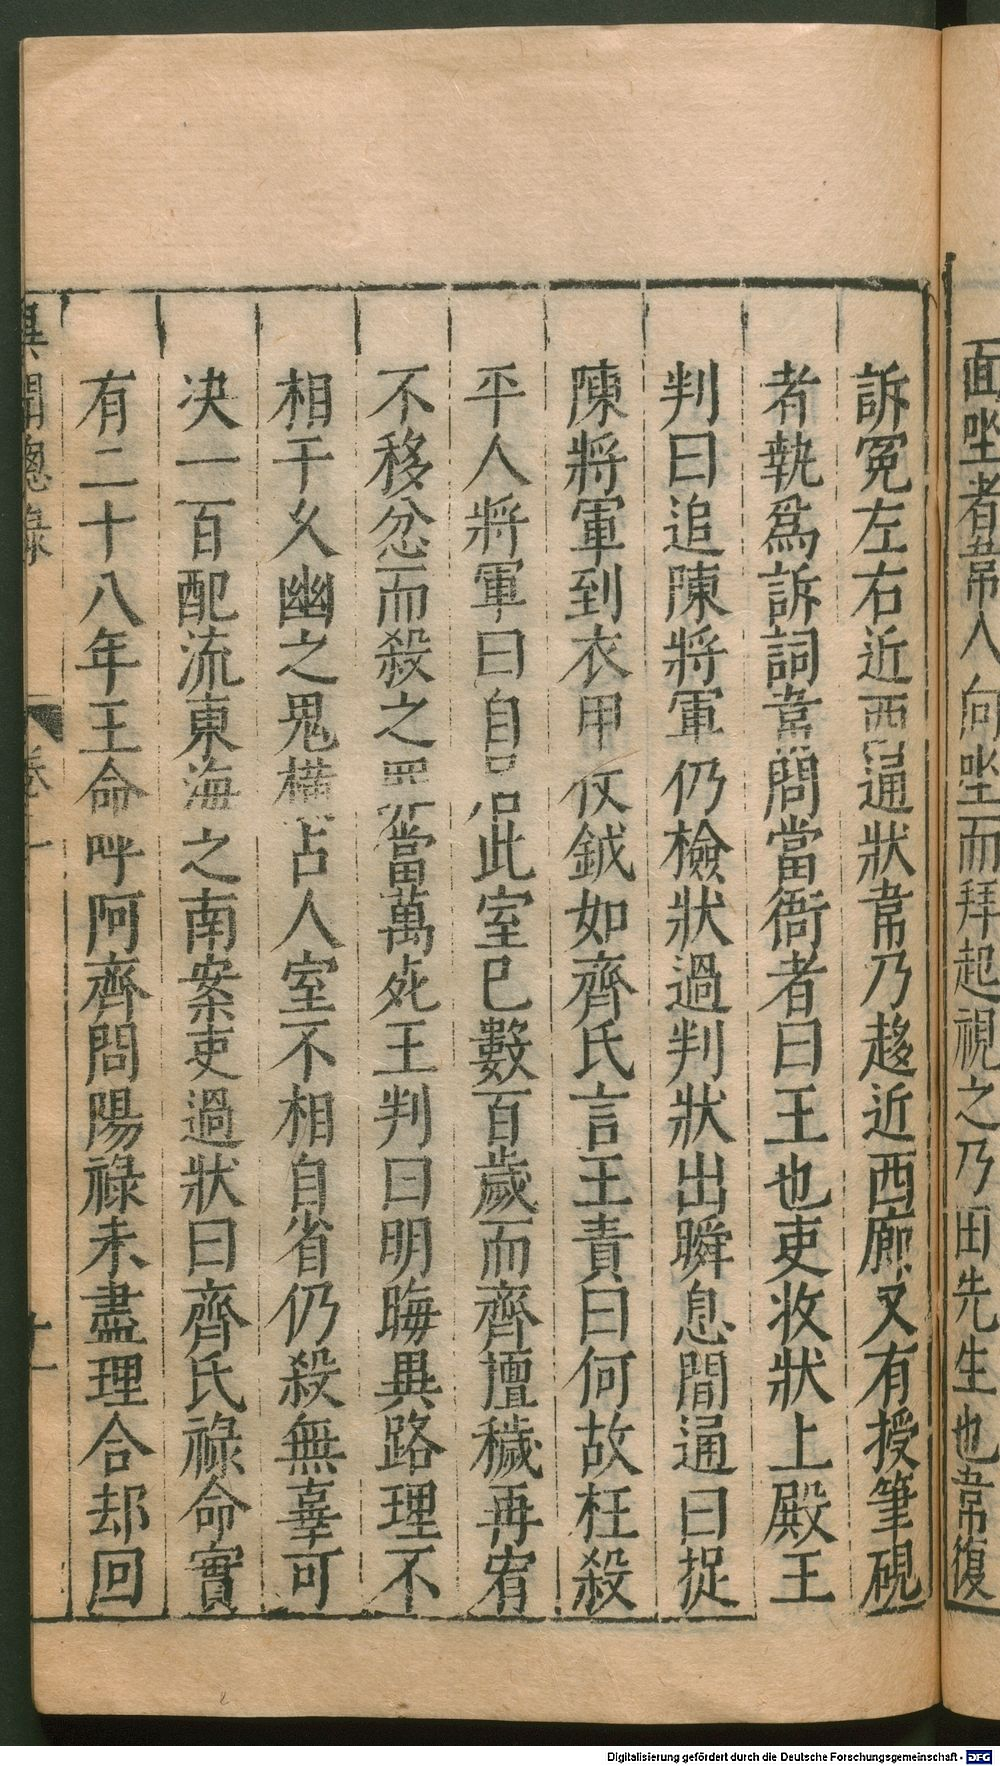 面坐者韋入向坐而拜起視之乃田先生也韋復
訴冤左右近西通狀韋乃趍近西廊又有授筆硯
者執爲訴詞韋問當衙者曰王也吏收狀上殿王
判曰追陳將軍仍檢狀過判狀出瞬息間通曰捉
陳將軍到衣甲仗鉞如齊氏言王責曰何故枉殺
平人將軍曰自居此室已數百歲而齊擅穢再宥
不移忿而殺之罪當萬死王判曰明晦異路理不
相干久幽之鬼橫占人室不相自省仍殺無辜可
决一百配流東海之南案吏過狀曰齊氏祿命實
有二十八年王命呼阿齊問陽祿未盡理合却回
異聞總錄
卷
十一
Digitalisierung gefördert durch die Deutsche Forschungsgemeinschaft - DFG